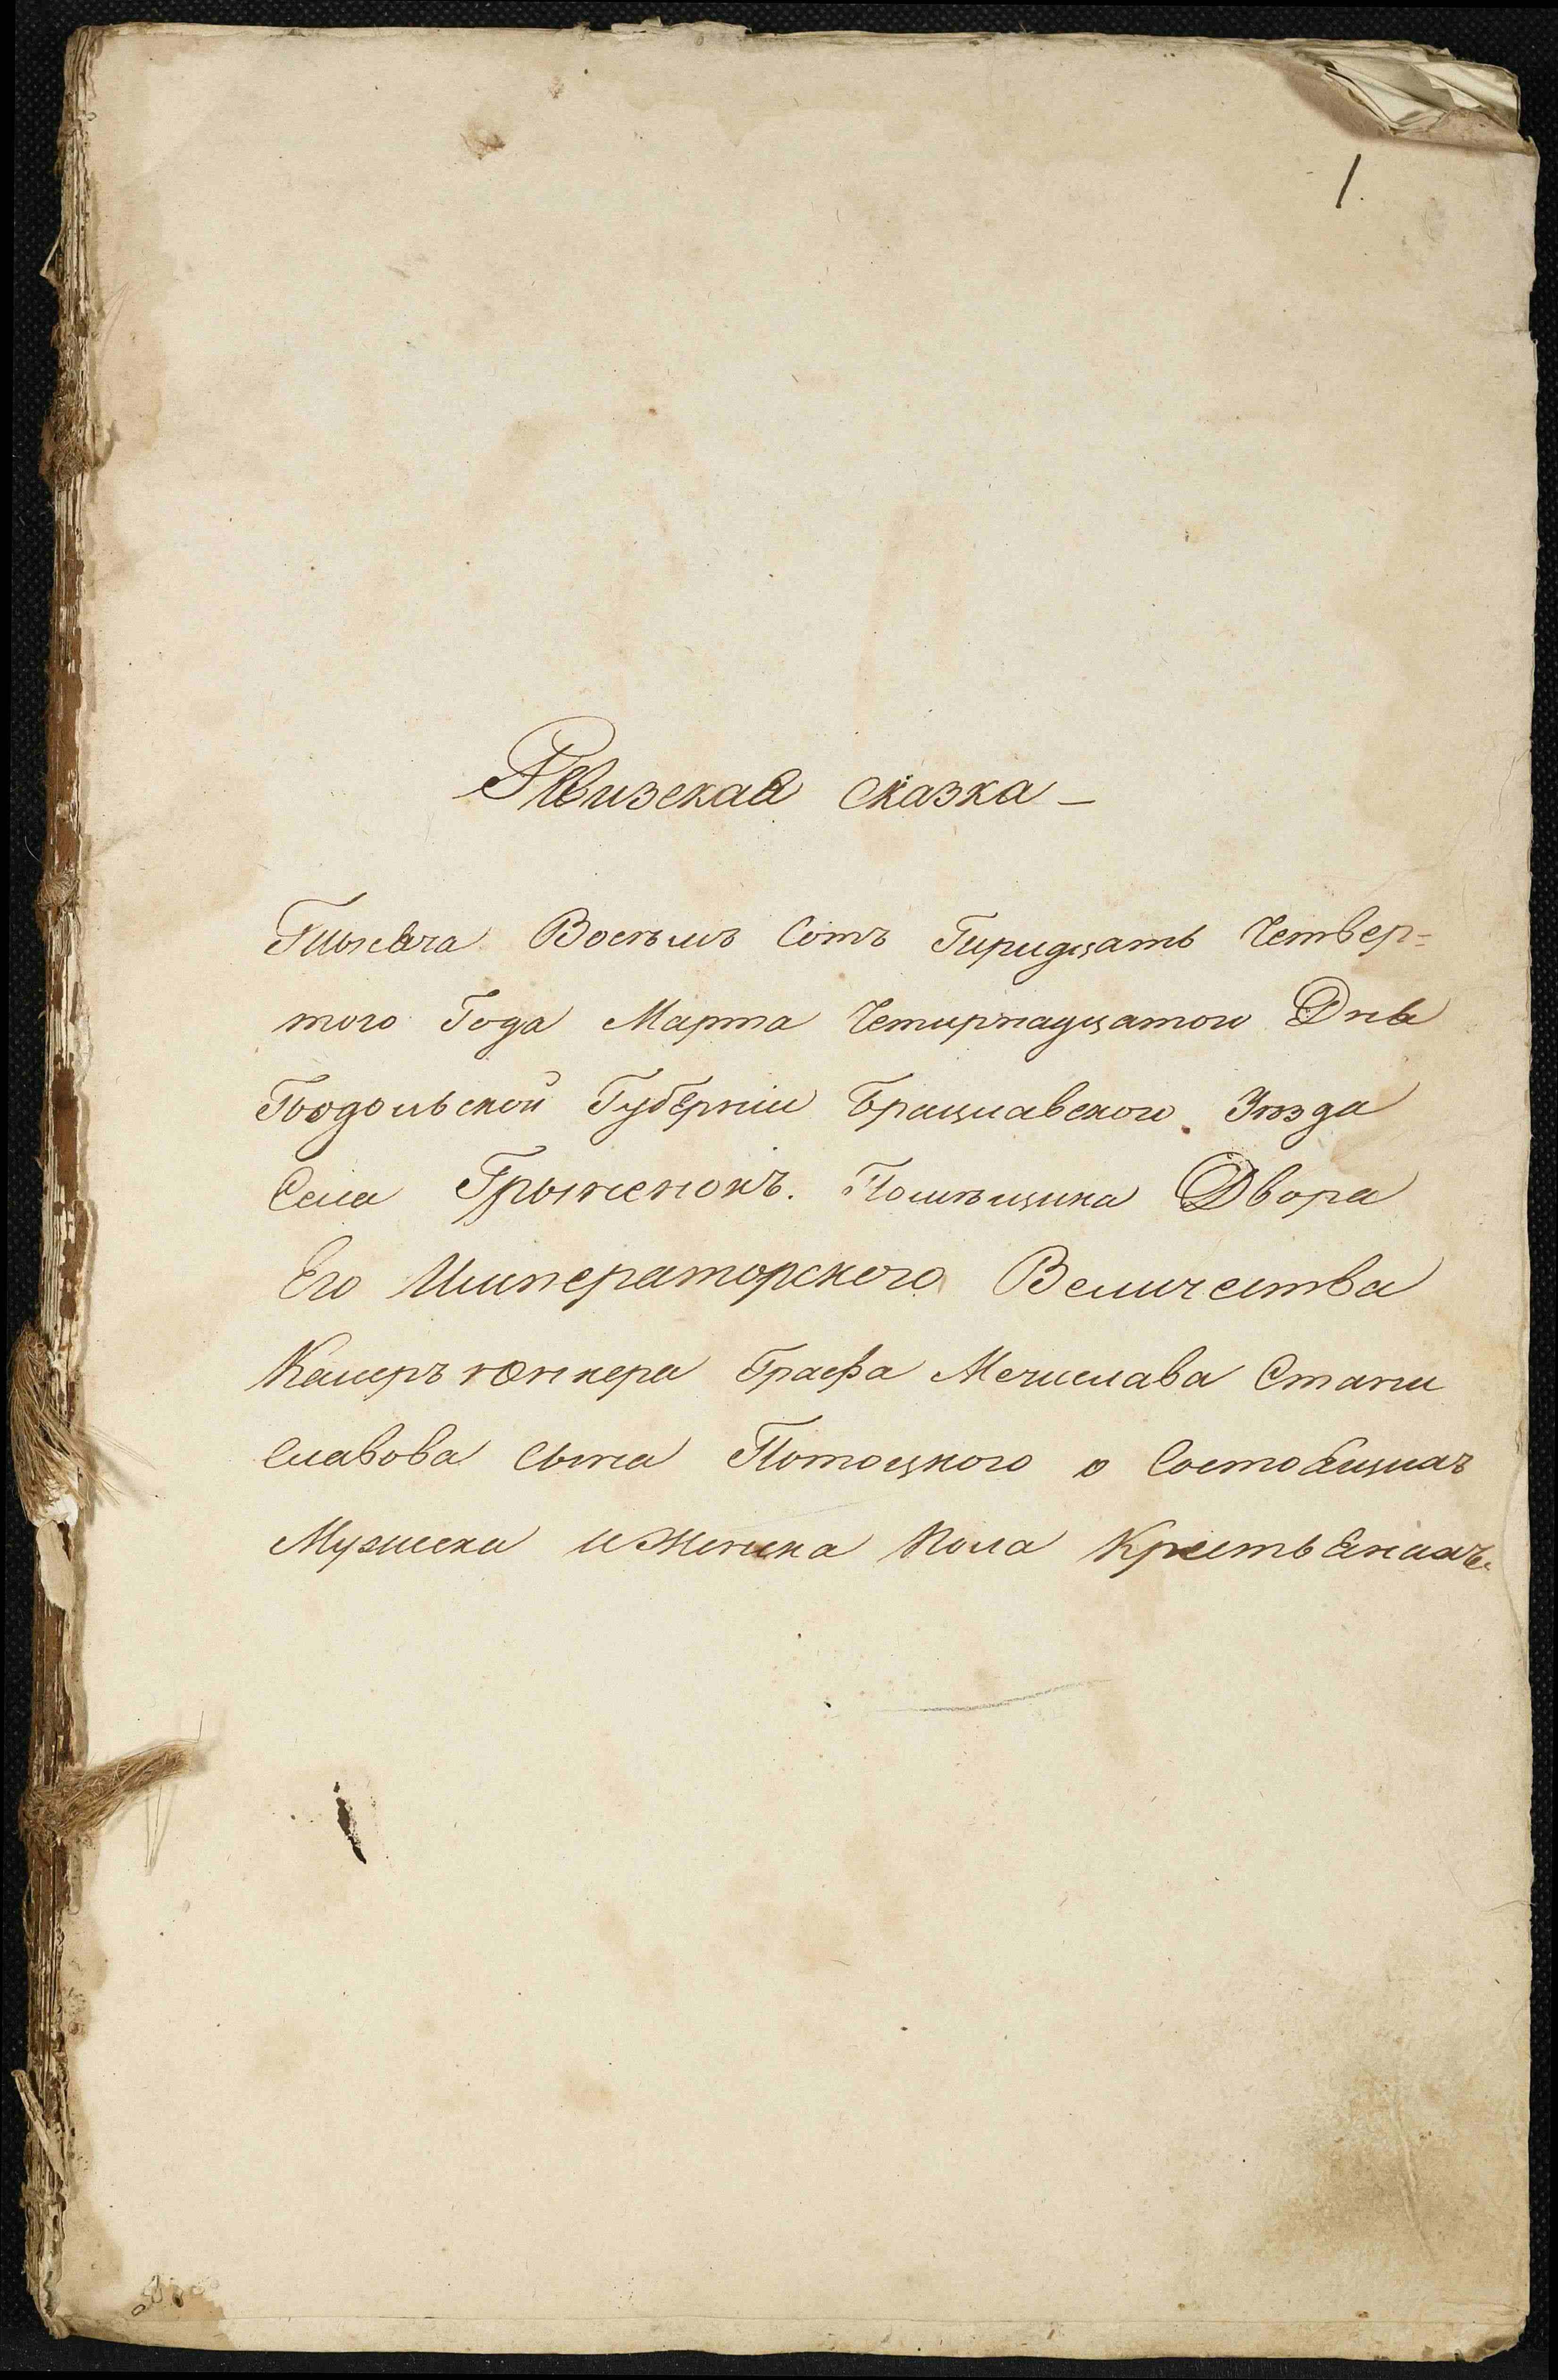 1.
Ревизская сказка —
Тысяча Восемь Сотъ Тридцать Четвер=
того Года Марта Четирнадцатого Дня
Подольской Губерніи Брацлавского Уѣзда
Села Грыженокъ. Помѣщика Двора
Его Императорского Величества
Камеръ юнкера Графа Мечислава Стани
славова сына Потоцкого о Состоящихъ
Мужеска и Женска Пола Крестьянахъ